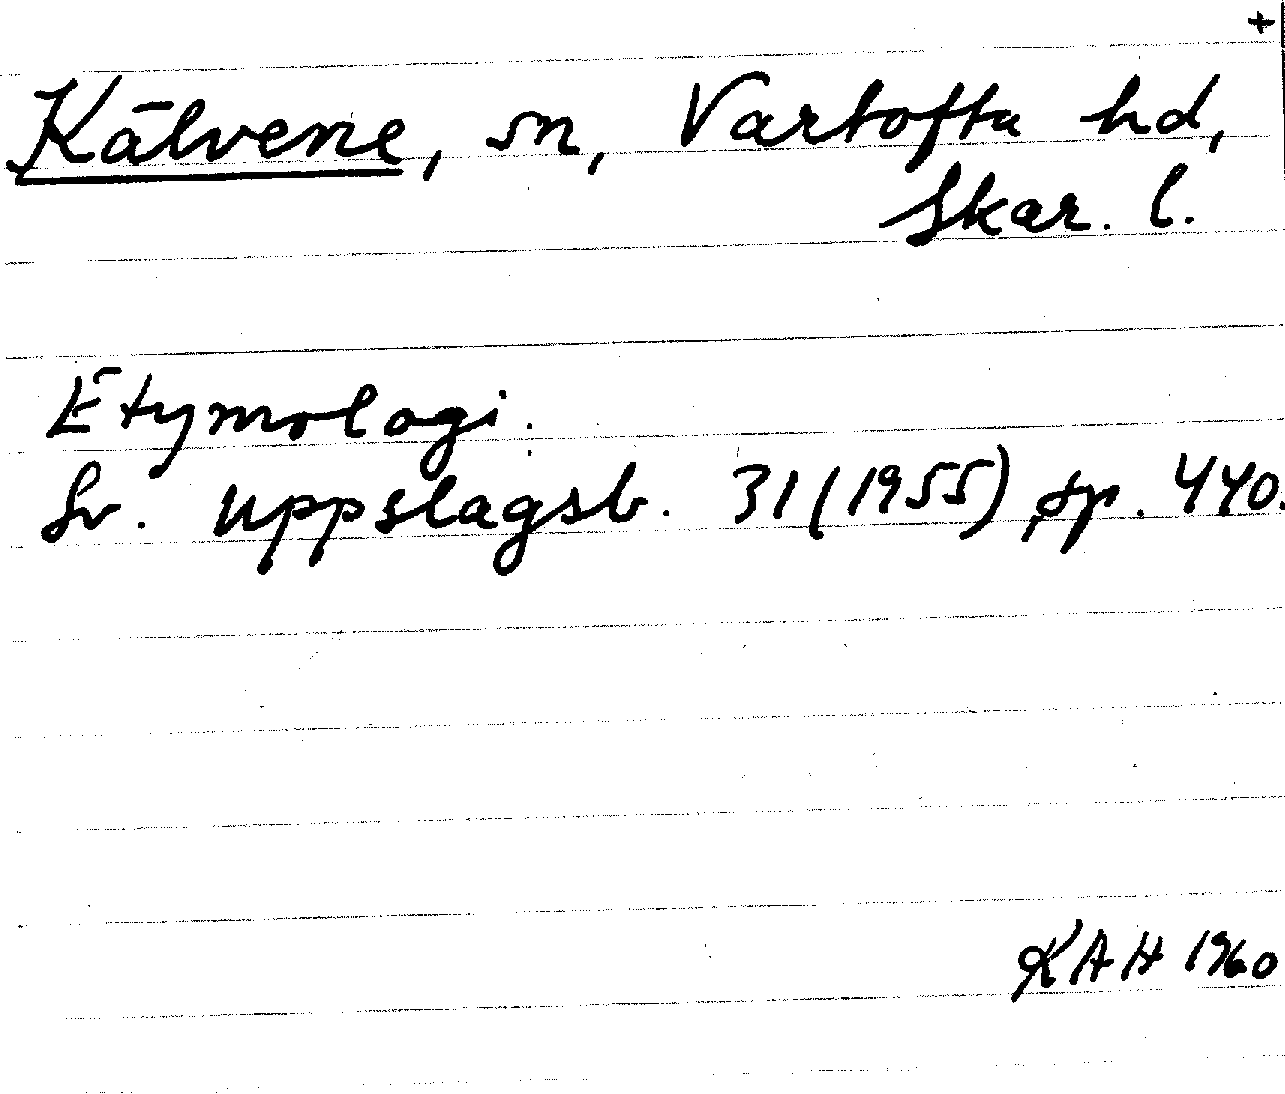 +
Kälvene, sn, Vartofta hd,
Skar. l.
Etymologi.
Sv. uppslagsb. 31 (1955) sp. 440.
KAH 1960